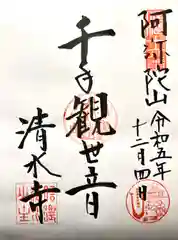 阿弥陀山
令和五年
十二月四日
千手観世音
清水寺